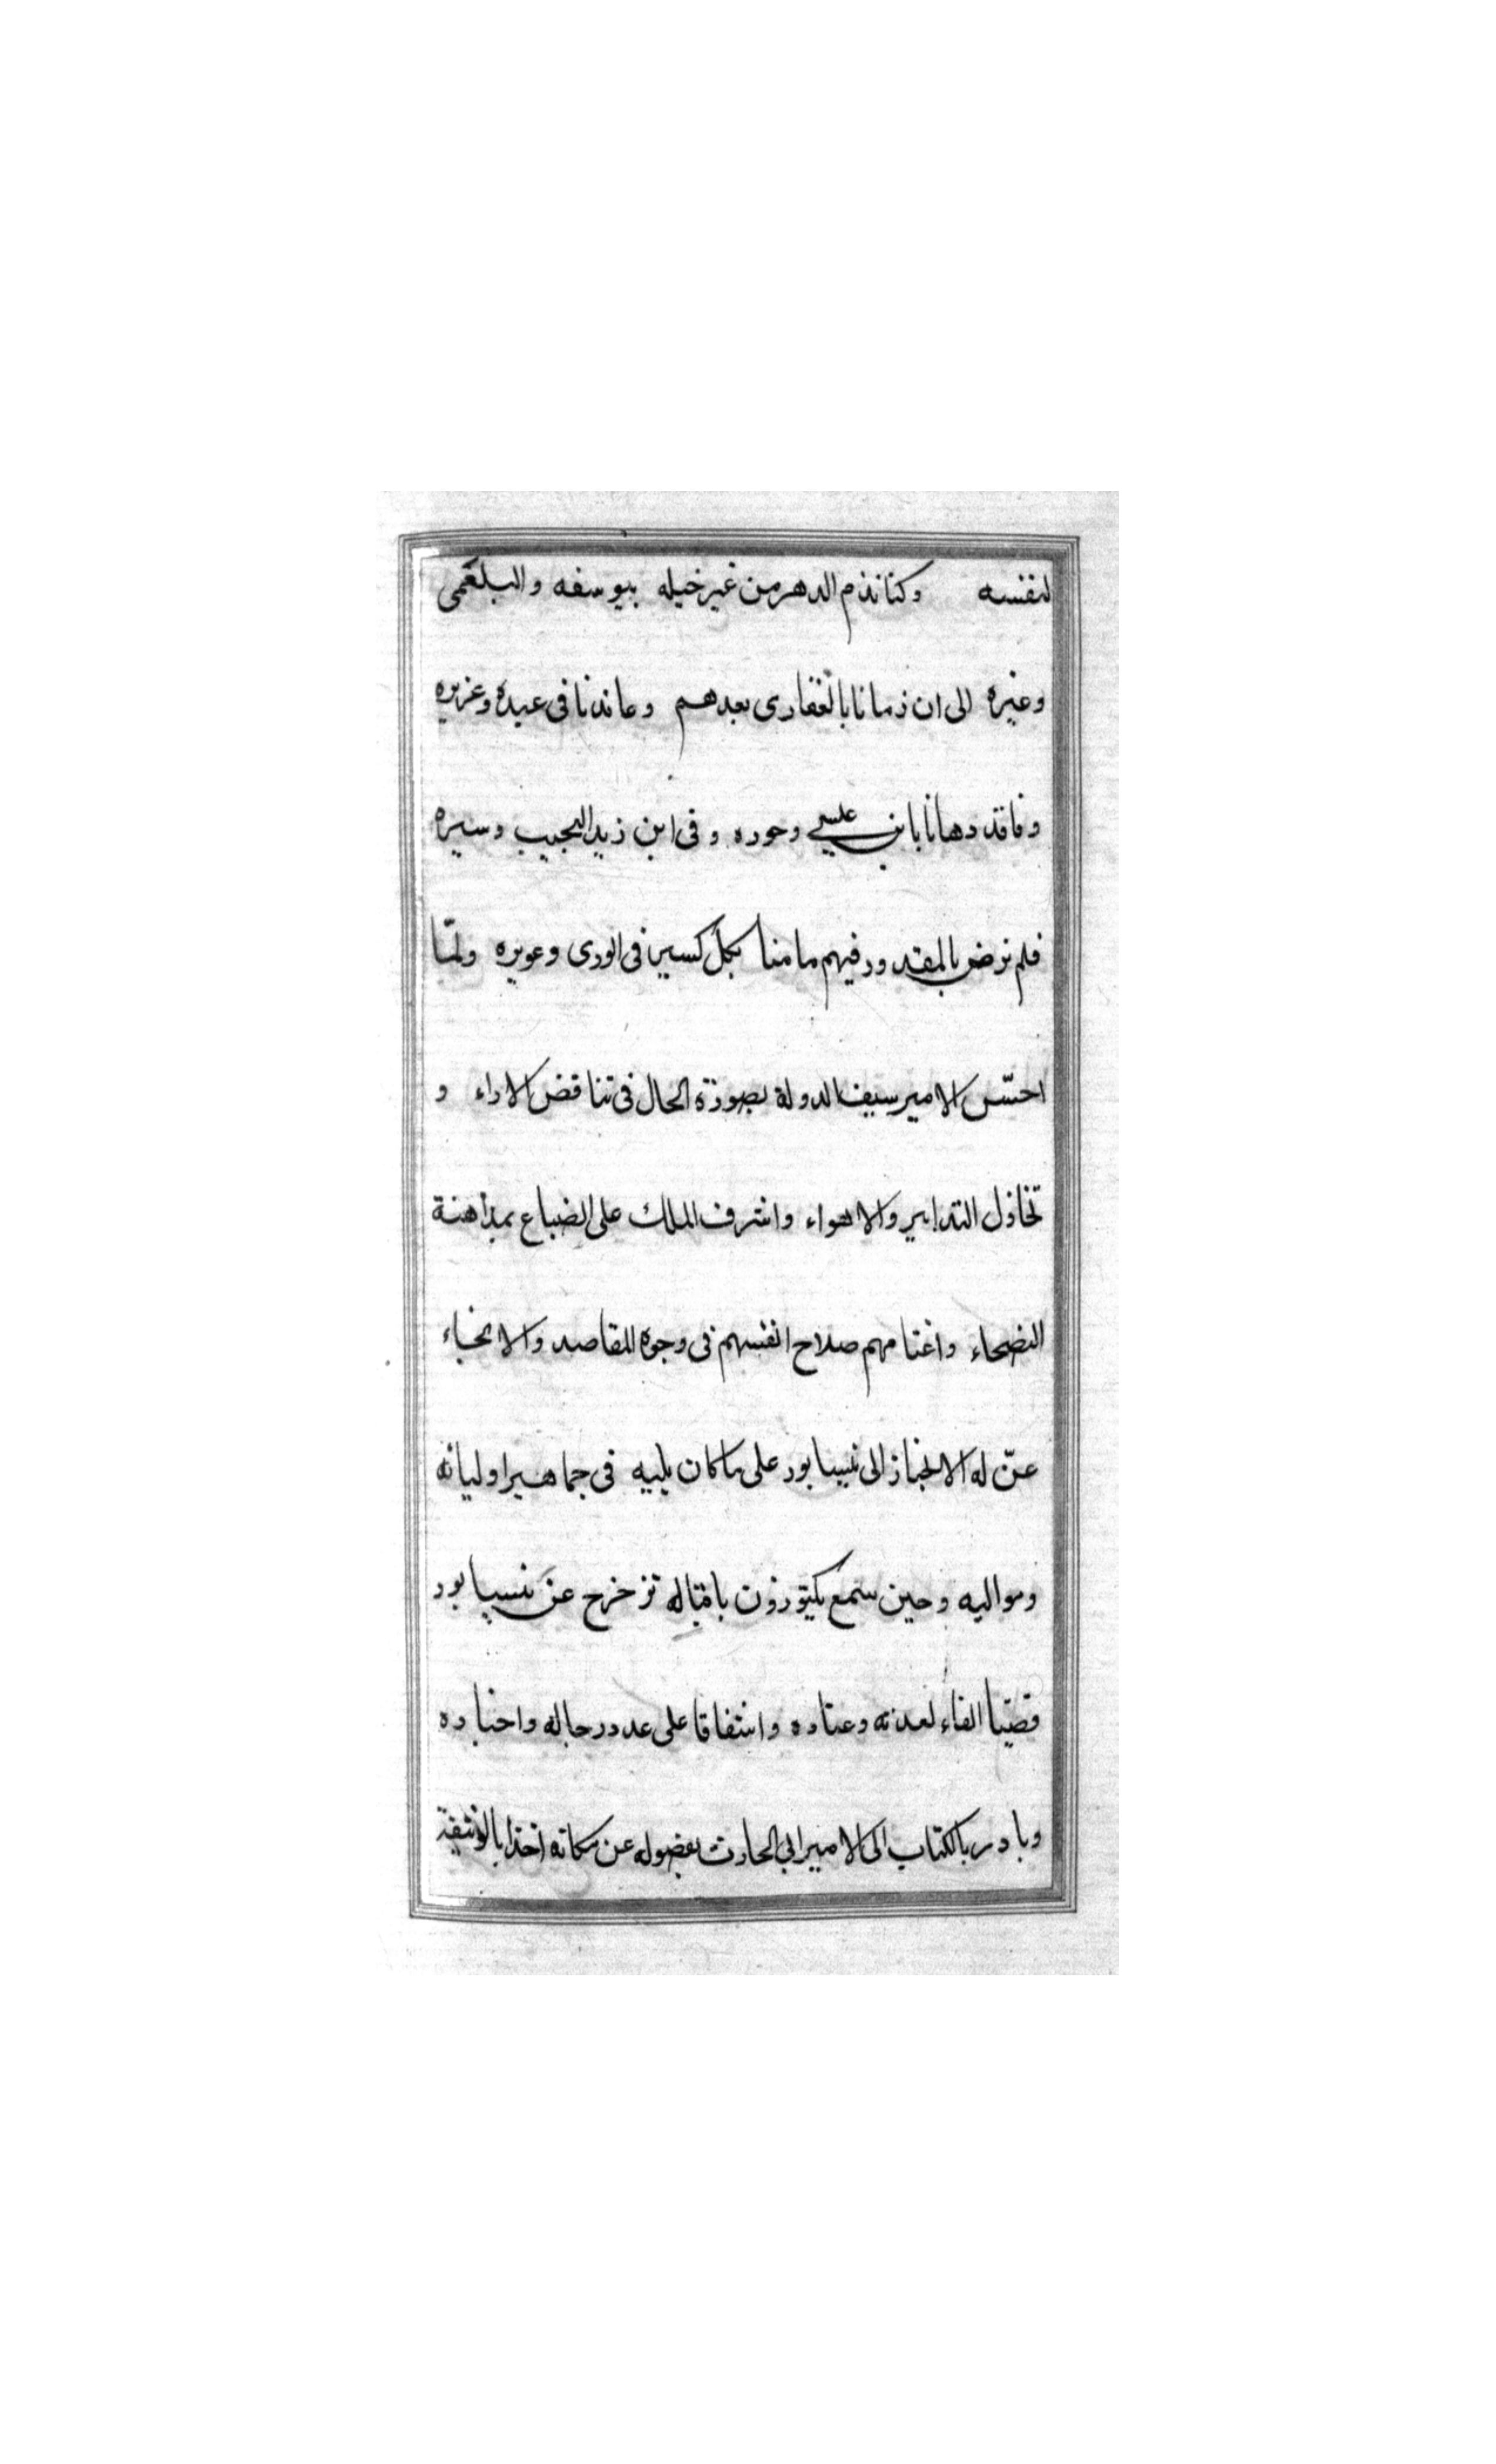 لنفسه وكنا نذم الدهر من غير خيله بيوسفه والبلعمى
وغيره الى ان زمانا بالغفارى بعدهم وعاندنا فى عبده وعزيره
وفا قد دهانا بابن عليسى وحوره وفى ابن زيد النجيب وسيره
فلم نرض بالمقدور فيهم مامنا بكل كسير فى الورى وعويره ولمّا
احسّ الامير سيف الدولة بصورة الحال فى تناقض الاراء و
تخاذل التدابير والاهواء واشرف الملك على الضياع بمداهنة
النصحاء واغتنامهم صلاح انفسهم فى وجوه المقاصد والانحاء
عنّ له الانحياز الى نيسابور على ما كان يليه فى جماهير اوليائه
ومواليه وحين سمع بكتوزون باقباله تزحزح عن نيسابور
القاء لعدته وعتاده واشفاقا على عدد رجاله واجناده
وبادر بالكتاب الى الامير ابى الحارث بفصوله عن مكانه اخذا بالوثيقة